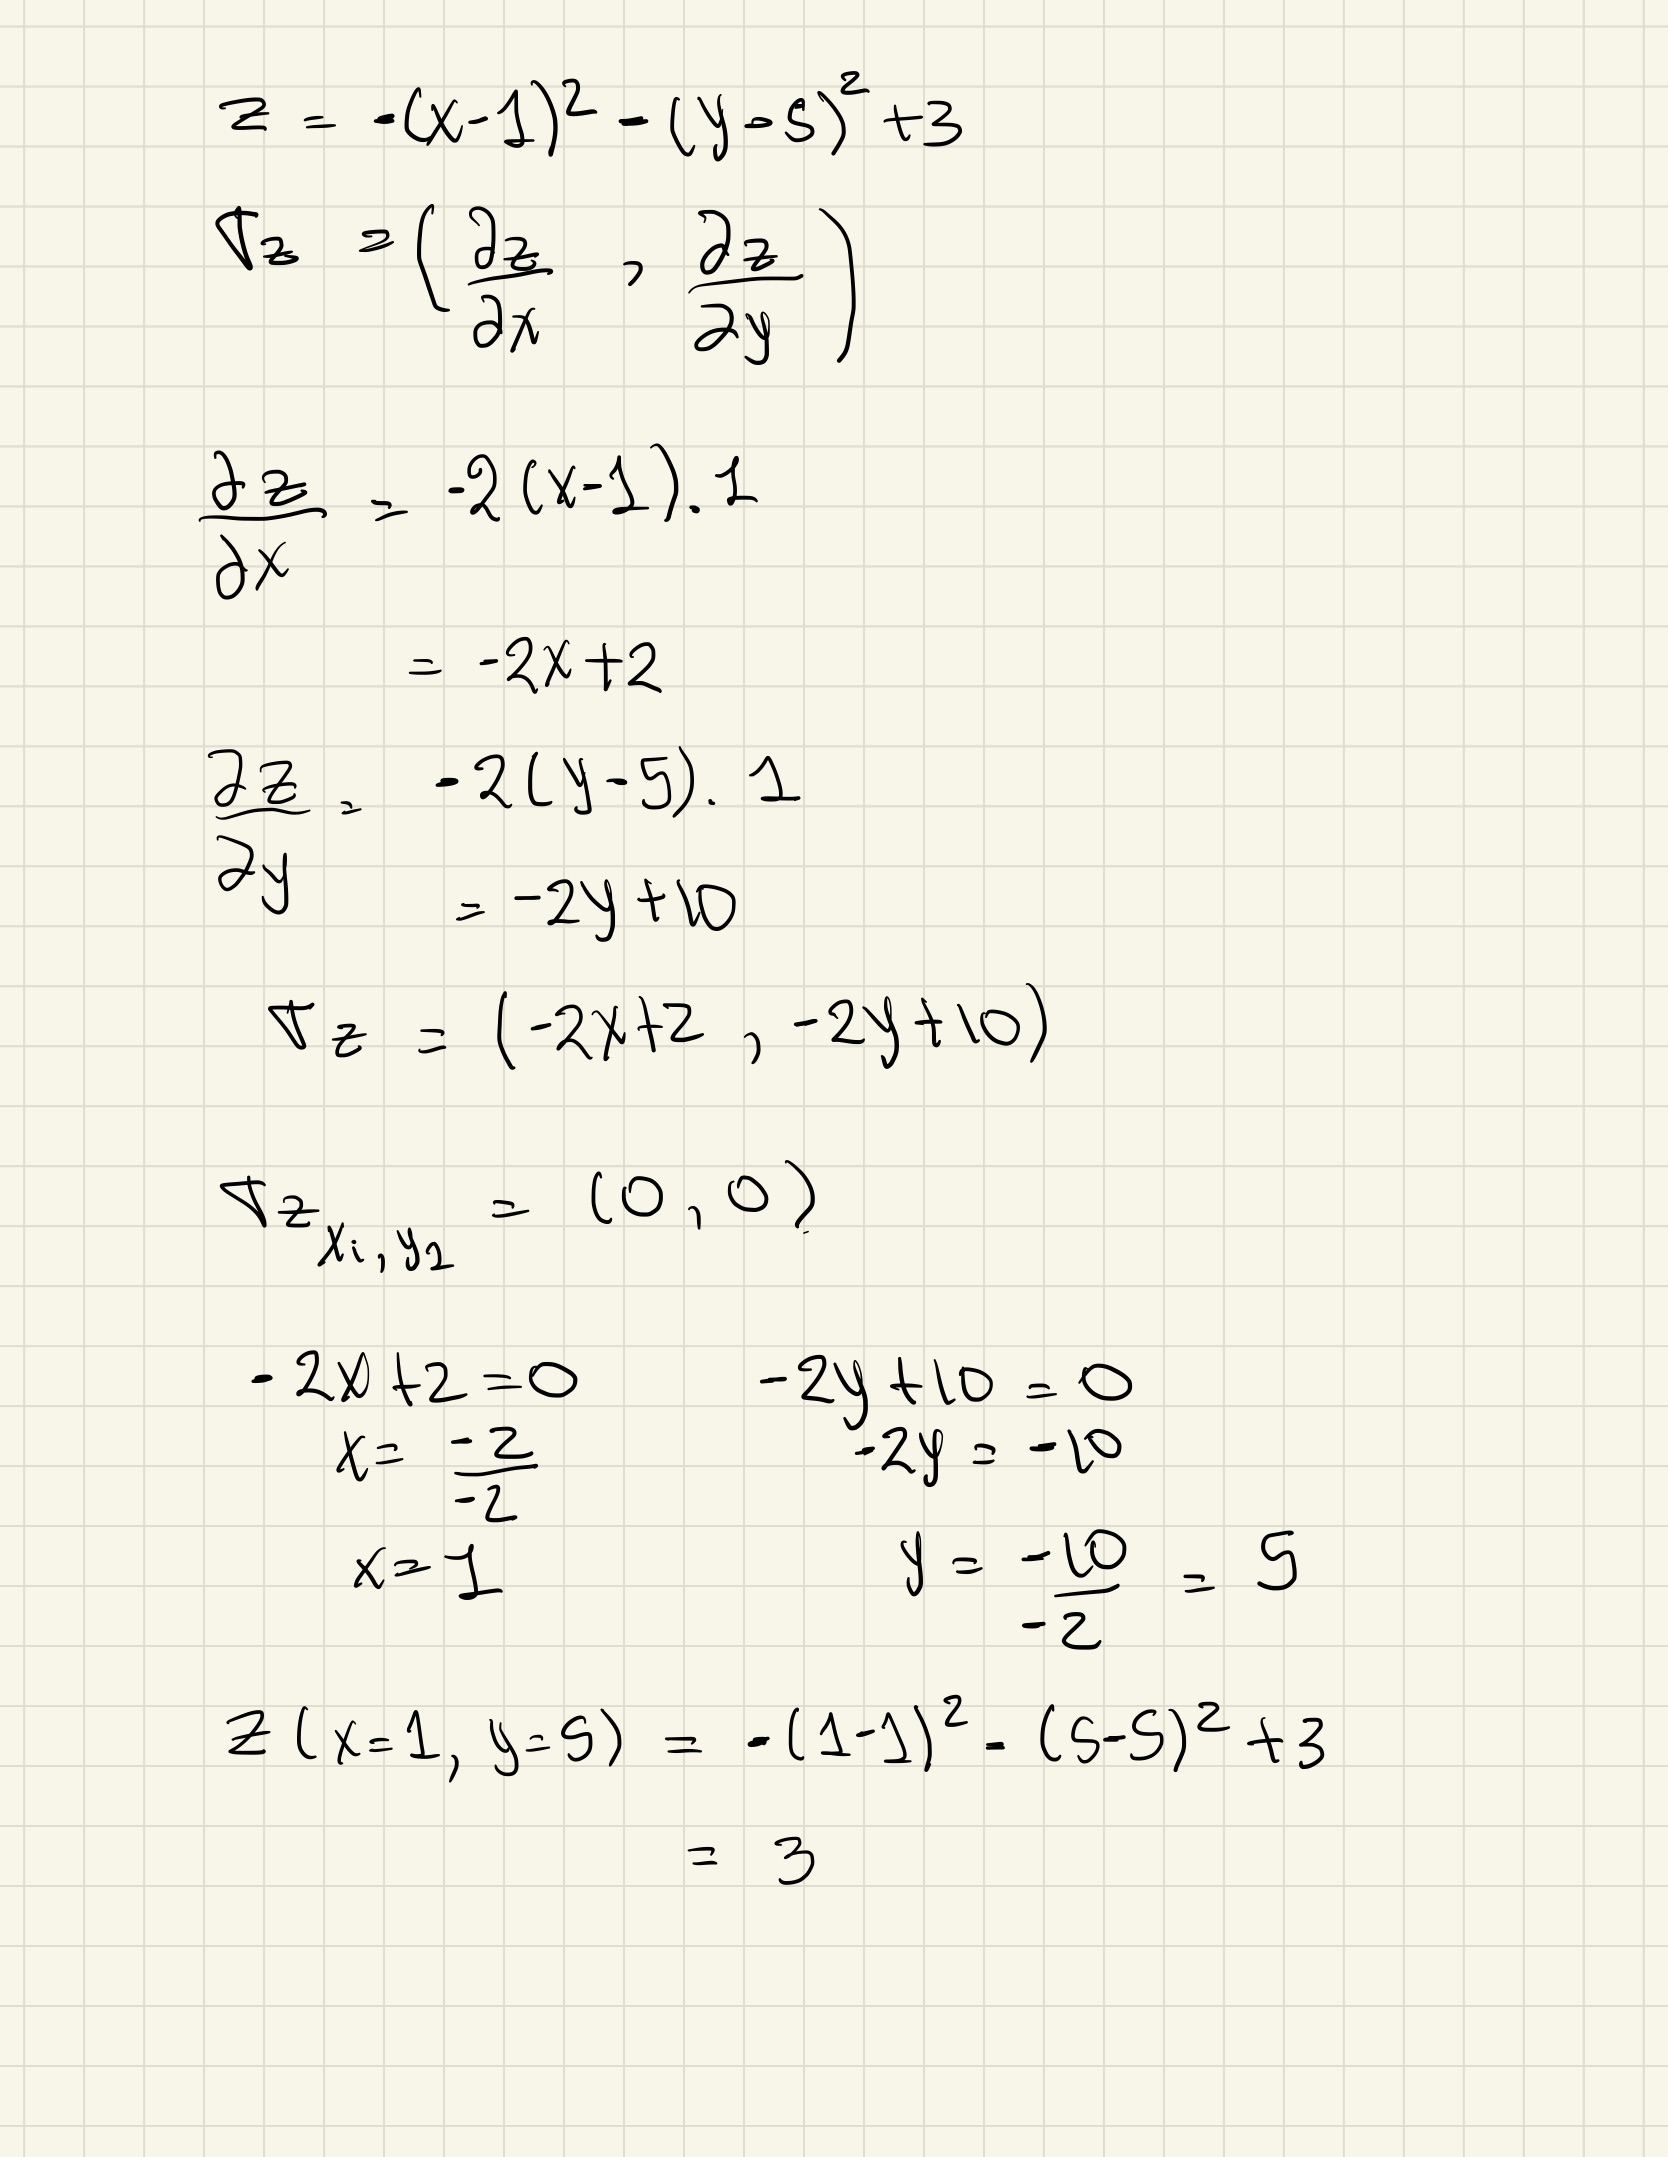 z = -(x-1)² - (y-5)² +3
∇z = (∂z/∂x , ∂z/∂y)
∂z/∂x = -2(x-1).1
= -2x+2
∂z/∂y = -2(y-5).1
= -2y+10
∇z = (-2x+2 , -2y+10)
∇z x₁,y₂ = (0,0)
-2x+2=0 -2y+10=0
x= -2/-2 -2y = -10
x=1 y = -10/-2 = 5
z(x=1, y=5) = -(1-1)² - (5-5)² +3
= 3